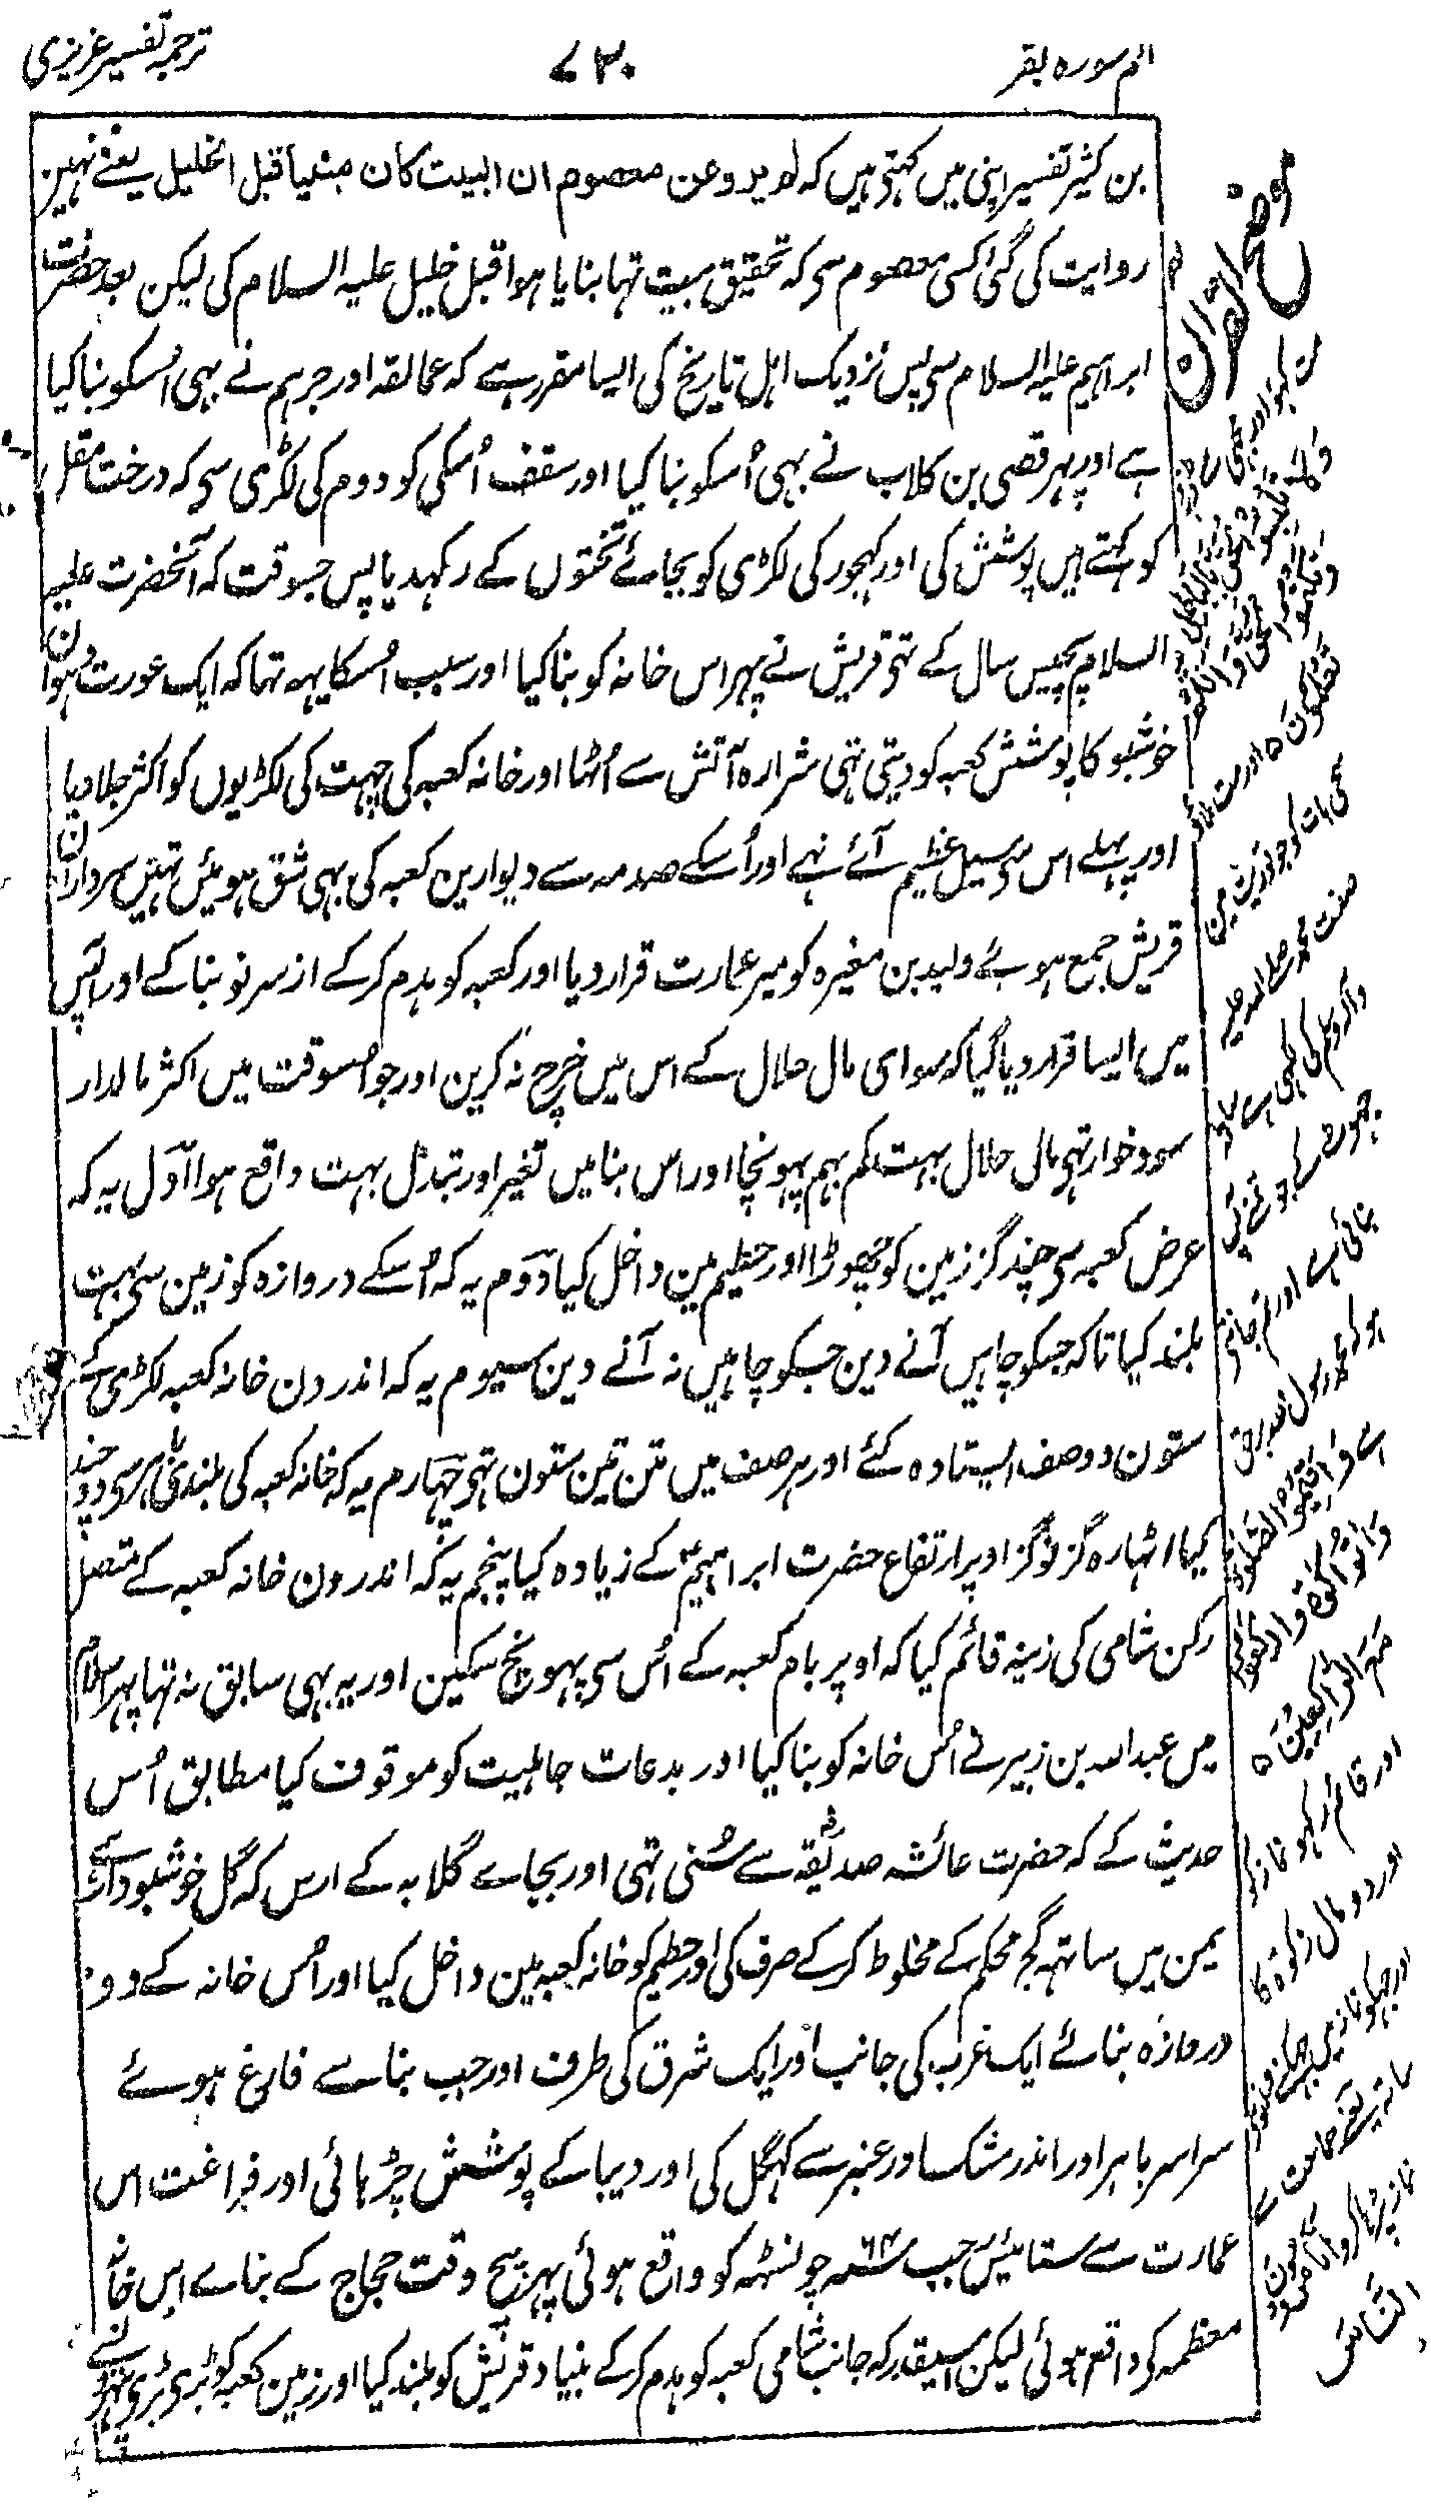 الم سورہ بقر
۷۳۰
ترجمہ تفسیر عزیزی
بن کثیر تفسیر اپنی میں کہتی ہیں کہ لم یرو عن معصوم ان البیت کان مبنیاً قبل الخلیل یعنے نہین
روایت کی گئی کسی معصوم سی کہ تحقیق بیت تہا بنایا ہوا قبل خلیل علیہ السلام کی لیکن بعد حضرت
ابراہیم علیہ السلام سی پس نزدیک اہل تاریخ کی ایسا مقرر ہے کہ عمالقہ اور جرہم نے بہی اُسکو بنا کیا
ہے اور پہر قصی بن کلاب نے بہی اُسکو بنا کیا اور سقف اُسکی کو دوم کی لکڑی سی کہ درخت مقل
کو کہتے ہیں پوشش کی اور کہجور کی لکڑی کو بجائے تختوں کے رکہدیا پس جسوقت کہ آنحضرت علیہ
السلام پچیس سال کے تہی قریش نے پہر اس خانہ کو بنا کیا اور سبب اُسکا یہہ تہا کہ ایک عورت دہوان
خوشبو کا پوشش کعبہ کو دیتی تہی شرارہ آتش سے اُٹہا اور خانہ کعبہ کی چہت کی لکڑیوں کو اکثر جلا دیا
اور پہلے اس سی سیل عظیم آئے تہے اور اُسکے صدمہ سے دیوارین کعبہ کی بہی شق ہوئیں تہیں سرداران
قریش جمع ہوئے ولید بن مغیرہ کو میر عمارت قرار دیا اور کعبہ کو ہدم کرکے از سر نو بنا کے اور آپس
میں ایسا قرار دیا گیا کہ سوای مال حلال کے اس میں خرچ نہ کرین اور جو اُسوقت میں اکثر مالدار
سود خوار تہی مال حلال بہت کم بہم پہونچا اور اس بنا میں تغیر اور تبدل بہت واقع ہوا اوّل یہ کہ
عرض کعبہ سی چند گز زمین کو چہوڑا اور حطیم مین داخل کیا دوّم یہ کہ اُسکے دروازہ کو زمین سی بہت
بلند کیا تا کہ جسکو چاہیں آنے دین جسکو چاہیں نہ آنے دین سیوم یہ کہ اندرون خانہ کعبہ لکڑی کے
ستون دو صف ایستادہ کئے اور ہر صف میں تین تین ستون تہی چہارم یہ کہ خانہ کعبہ کی بلندی کو دو چند
کیا اٹہارہ گز نو گز اوپر ارتفاع حضرت ابراہیمؑ کے زیادہ کیا پنجم یہ کہ اندرون خانہ کعبہ کے متصل
رکن شامی کی زینہ قائم کیا کہ اوپر بام کعبہ کے اُس سی پہونچ سکین اور یہ بہی سابق نہ تہا پہر اسلام
میں عبداللہ بن زبیر نے اُس خانہ کو بنا کیا اور بدعات جاہلیت کو موقوف کیا مطابق اُس
حدیث کے کہ حضرت عائشہ صدیقہؓ سے سُنی تہی اور بجاے گلابہ کے ارس کہ گل خوشبودار ہے
یمن میں ساتہہ گچ محکم کے مخلوط کرکے صرف کی اور حطیم کو خانہ کعبہ مین داخل کیا اور اُس خانہ کے دو
دروازہ بنائے ایک غرب کی جانب اور ایک شرق کی طرف اور جب بنا سے فارغ ہوئے
سراسر باہر اور اندر مشک اور عنبر سے کہگل کی اور دیبا کے پوشش چڑہائی اور فراغت اس
عمارت سے ستائیس رجب سنہ ۶۴ چونسٹہہ کو واقع ہوئی پہر بیچ وقت حجاج کے بناے اس خانہ
معظمہ کی واقع ہوئی لیکن اسیقدر کہ جانب شامی کعبہ کو ہدم کرکے بنیاد قریش کو بلند کیا اور زمین کعبہ کو بڑی بڑی پتہروں سے
وانتم تعلمون ہ اور مت ملاؤ
صفت محمد صلی اللہ علیہ
وآلہ وسلم کی لکہی ہے
واقیموا الصلوٰۃ
واتوا الزکوٰۃ وارکعوا
مع الراکعین ہ
اور قائم رکہو نماز
اور دو مال زکوٰۃ کا
الناس